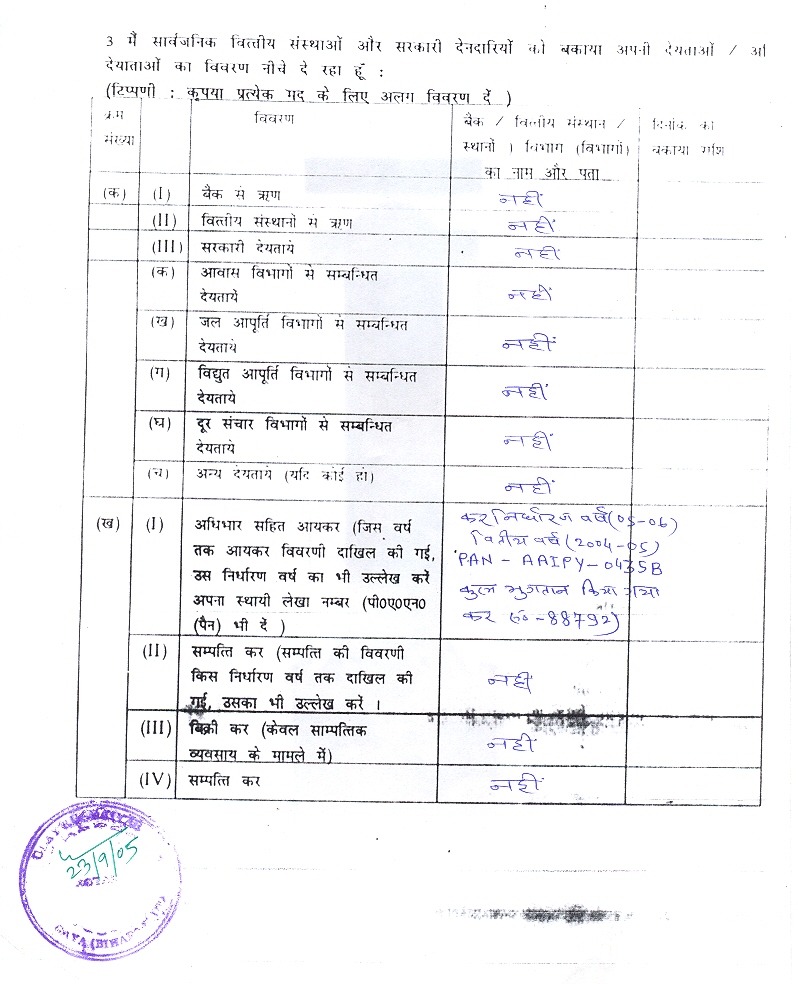 3 मैं सार्वजनिक वित्तीय संस्थाओं और सरकारी देनदारियों को बकाया अपनी देयताओं / अ
देयाताओं का विवरण नीचे दे रहा हूँ :
(टिप्पणी : कृपया प्रत्येक मद के लिए अलग विवरण दें )
क्रम संख्या
विवरण
बैंक / वित्तीय संस्थान /
स्थानों ) विभाग (विभागों)
का नाम और पता
दिनांक को
बकाया राशि
(क) (I) बैंक से ऋण नहीं
(II) वित्तीय संस्थानों से ऋण नहीं
(III) सरकारी देयताये नहीं
(क) आवास विभागों से सम्बन्धित
देयतायें नहीं
(ख) जल आपूर्ति विभागों से सम्बन्धित
देयताये नहीं
(ग) विद्युत आपूर्ति विभागों से सम्बन्धित
देयताये नहीं
(घ) दूर संचार विभागों से सम्बन्धित
देयताये नहीं
(च) अन्य देयताये (यदि कोई हो) नहीं
(ख) (I) अधिभार सहित आयकर (जिम वर्ष
तक आयकर विवरणी दाखिल की गई,
उस निर्धारण वर्ष का भी उल्लेख करें
अपना स्थायी लेखा नम्बर (पी०ए०एन०
(पैन) भी दें )
कर निर्धारण वर्ष (05-06)
वित्तीय वर्ष (2004-05)
PAN - AAIPY-0435B
कुल भुगतान किया गया
कर रु० -88792)
(II) सम्पत्ति कर (सम्पत्ति की विवरणी
किस निर्धारण वर्ष तक दाखिल की
गई, उसका भी उल्लेख करें । नहीं
(III) बिक्री कर (केवल साम्पत्तिक
व्यवसाय के मामले में) नहीं
(IV) सम्पत्ति कर नहीं
23/9/05
GAYA (BIHAR)